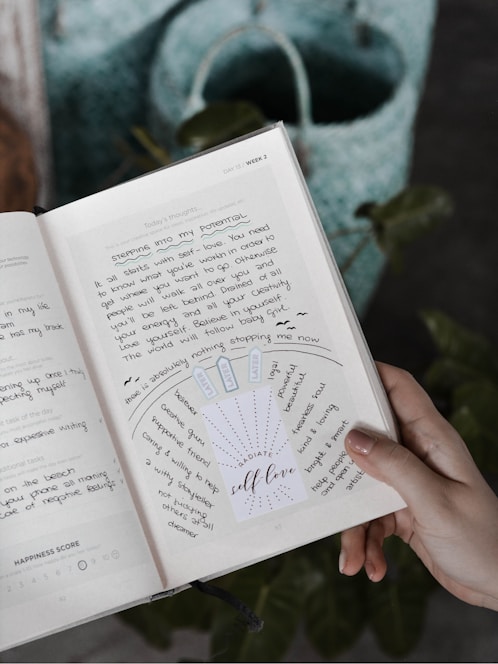 in my life
am
has my back
ening up once I truly
pecting myself
task of the day
or expensive writing
ditional tasks
on the beach
your phone all morning
care of negative feelings
HAPPINESS SCORE
2 3 4 5 6 7 8 9 10
DAY 13 / WEEK 2
Today's thoughts...
STEPPING INTO MY POTENTIAL
It all starts with self-love. You need
to know what you're worth in order to
get where you want to go. Otherwise
people will walk all over you and
you'll be left behind. Drained of all
your energy and all your creativity
Love yourself. Believe in yourself.
The world will follow baby girl.
there is absolutely nothing stopping me now
LATER
LATER
LATER
believer
creative guru
supportive friend
caring & willing to help
a witty storyteller
not trusting
others at all
dreamer
RADIATE
self-love
loyal
powerful
beautiful
fearless soul
kind & loving
bright & smart
help people
and open
artist